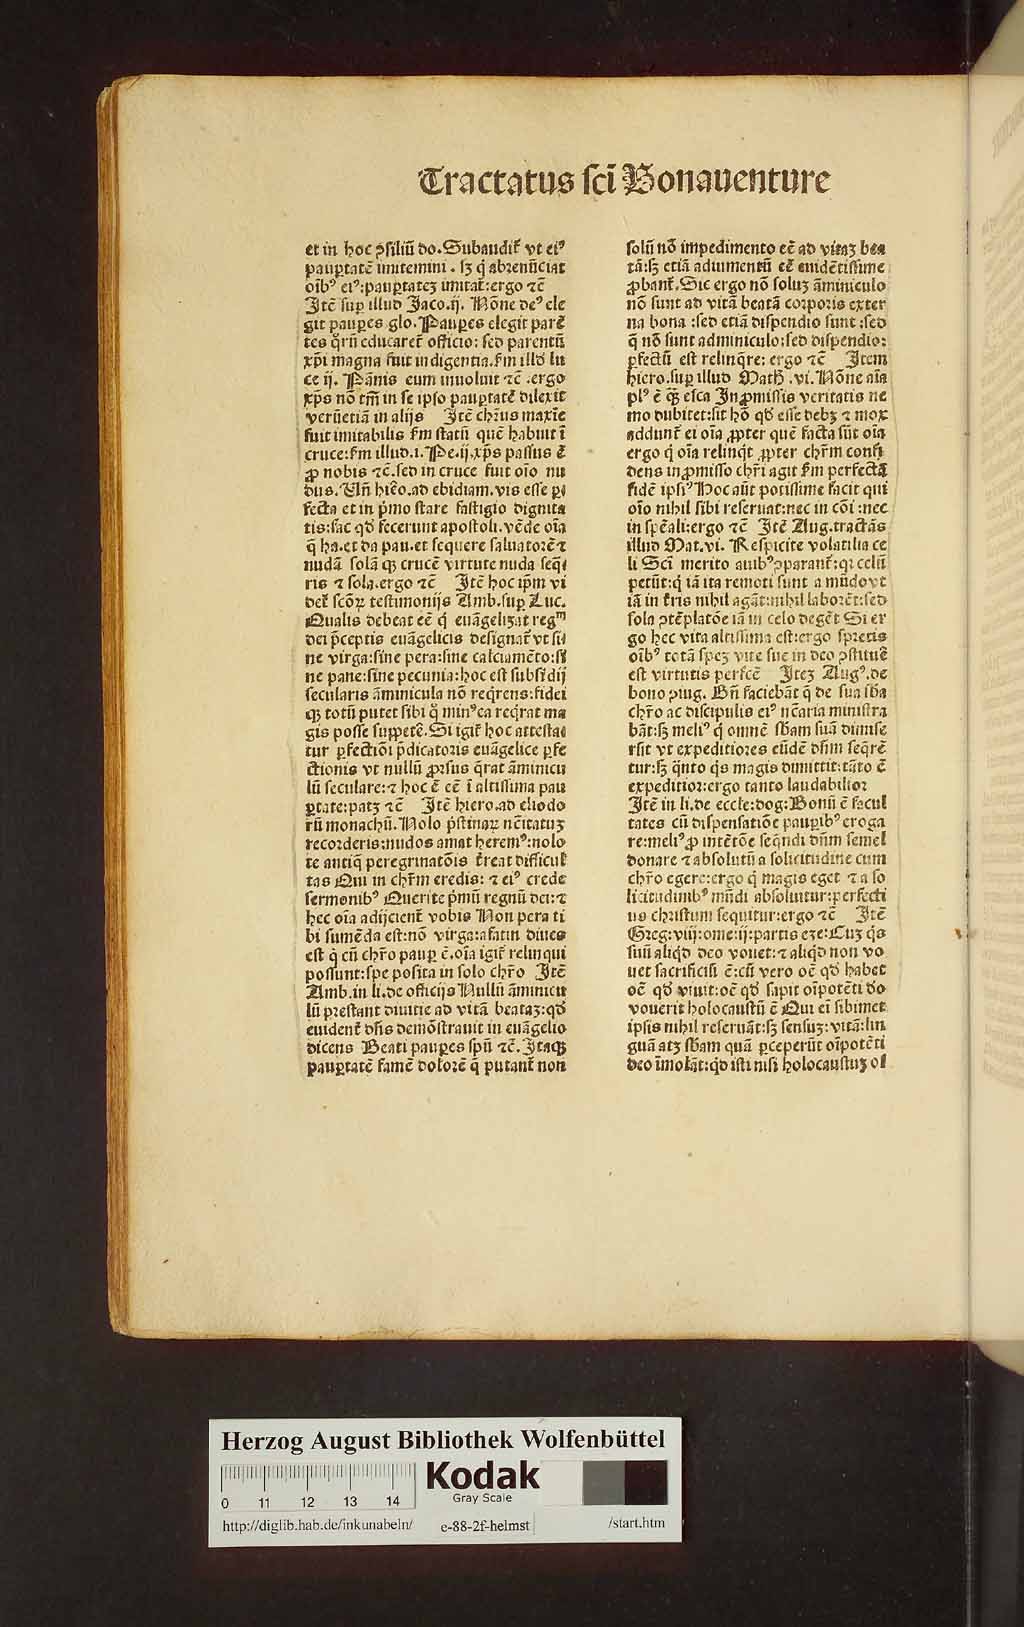 Tractatus scī Bonauenture
et in hoc ꝯsiliū do. Subaudit᷑ vt ei⁹
pauꝑtatē imitemini . sꝫ q̄ abrenūciat
oīb⁹ ei⁹: pauꝑtateꝫ imitat᷑: ergo ⁊cē
Itē suꝑ illud Jaco.ij. Nōne de⁹ ele
git pauꝑes glo. Pauꝑes elegit parē
tes q̄rū educaret᷑ officio: sed parentū
xp̄i magna fuit indigentia. ẜm illḋ lu
ce ij. Pānis eum inuoluit ⁊cē .ergo
xp̄s nō tm̄ in se ipso pauꝑtatē dilexit
verūetiā in alijs Itē chr̄us maxīe
fuit imitabilis ẜm statū quē habuit ī
cruce: ẜm illud.i. Pe.ij. xp̄s passus ē
ꝓ nobis ⁊cē. sed in cruce fuit oīo nu
dus. Vn̄ hiēo. ad ebidiam. vis esse ꝑ⸗
fecta et in p̄mo stare fastigio dignita
tis: fac qḋ fecerunt apostoli. vēde oīa
q̄ ha. et da pau. et sequere saluatorē ⁊
nudā solā qꝫ crucē virtute nuda seq̄⸗
ris ⁊ sola. ergo ⁊cē Itē hoc ip̄m vi
det᷑ scōꝝ testimonijs Amb. suꝑ Luc.
Qualis debeat eē q̄ euāgelizat regᵐ
dei p̄ceptis euāgelicis designat᷑ vt si⸗
ne virga: sine pera: sine calciamēto: si
ne pane: sine pecunia: hoc est subsīdij
secularis āminicula nō reqrēns: fidei
qꝫ totū putet sibi q̄ min⁹ ea reqrat ma
gis posse suppetē. Si igit᷑ hoc attesta⸗
tur ꝑfectiōi p̄dicatoris euāgelice ꝑfe
ctionis vt nullū ꝓrsus q̄rat āminicu
lū seculare: ⁊ hoc ē eē ī altissima pau
ꝑtate: patꝫ ⁊cē Itē hiero. ad eliodo
rū monachū. Nolo p̄stinaꝝ nc̄itatuꝫ
recorderis: nudos amat herem⁹: nolo
te antiq̄ peregrinatōis t᷑reat difficul
tas Qui in chr̄m credis: ⁊ ei⁹ crede
sermonib⁹ Querite p̄mū regnū dei: ⁊
hec oīa adijcient᷑ vobis Non pera ti
bi sumēda est: nō virga: afatin diues
est q̄ cū chr̄o pauꝑ ē. oīa igit᷑ relinqui
possunt: spe posita in solo chr̄o Itē
Amb. in li. de officijs Nullū āminicu
lū prestant diuitie ad vitā beataꝫ: qḋ
euident᷑ dn̄s demōstrauit in euāgelio
dicens Beati pauꝑes spū ⁊cē. Itaqꝫ
pauꝑtatē famē dolorē q̄ putant᷑ non
solū nō impedimento eē ad vitaꝫ bea
tā: sꝫ etiā adiumentū eē euidētissime
ꝓbant᷑. Sic ergo nō soluꝫ āminiculo
nō sunt ad vitā beatā corporis exter
na bona : sed etiā dispendio sunt : sed
q̄ nō sunt adminiculo: sed dispendio:
ꝑfectū est relinq̄re: ergo ⁊cē Item
hiero. suꝑ illud Math̄ .vi. Nōne aīa
pl⁹ ē qꝫ esca In ꝓmissis veritatis ne
mo dubitet: sit hō qḋ esse debꝫ ⁊ mox
addunt᷑ ei oīa ꝓpter quē facta sūt oīa
ergo q̄ oīa relinqt᷑ ꝓpter chr̄m confi
dens in ꝓmisso chr̄i agit ẜm perfectā
fidē ipsi⁹ Hoc aūt potissime facit qui
oīo nihil sibi reseruat: nec in cōi : nec
in spēali: ergo ⁊cē Itē Aug. tractās
illud Mat. vi. Respicite volatilia ce
li Scī merito auib⁹ ꝯparant᷑: qꝛ celū
petūt: q̄ iā ita remoti sunt a mūdo vt
iā in t᷑ris nihil agāt: nihil laborēt: sed
sola ꝯtēplatōe iā in celo degēt Si er
go hec vita altissima est: ergo spretis
oīb⁹ totā speꝫ vite sue in deo ꝯstituē
est virtutis perfcē Iteꝫ Aug⁹. de
bono ꝯiug. Bn̄ faciebāt q̄ de sua sb̄a
chr̄o ac discipulis ei⁹ nc̄aria ministra
bāt: sꝫ meli⁹ q̄ omnē sb̄am suā dimise
rūt vt expeditiores eūdē dn̄m seq̄rē
tur: sꝫ q̄nto q̄s magis dimittit: tāto ē
expeditior: ergo tanto laudabilior
Itē in li. de eccle: dog: Bonū ē facul
tates cū dispensatiōe pauꝑib⁹ eroga
re: meli⁹ ꝓ intētōe seq̄ndi dn̄m semel
donare ⁊ absolutū a solicitudine cum
chr̄o egere: ergo q̄ magis eget ⁊ a so
licitudinib⁹ mūdi absoluitur: perfecti
us christum sequitur: ergo ⁊cē Itē
Greg: viij: ome: ij: partis eze: Cuꝫ q̄s
suū aliqḋ deo vouet: ⁊ aliqḋ non vo
uet sacrificiū ē: cū vero oē qḋ habet
oē qḋ viuit: oē qḋ sapit oīpotēti do
vouerit holocaustū ē Qui ei sibimet
ipsis nihil reseruāt: sꝫ sensuꝫ: vitā: lin
guā atꝫ sb̄am quā ꝑceperūt oīpotēti
deo īmolāt: qḋ isti nisi holocaustuꝫ of
Herzog August Bibliothek Wolfenbüttel
0 11 12 13 14
Kodak
Gray Scale
http://diglib.hab.de/inkunabeln/ e-88-2f-helmst /start.htm